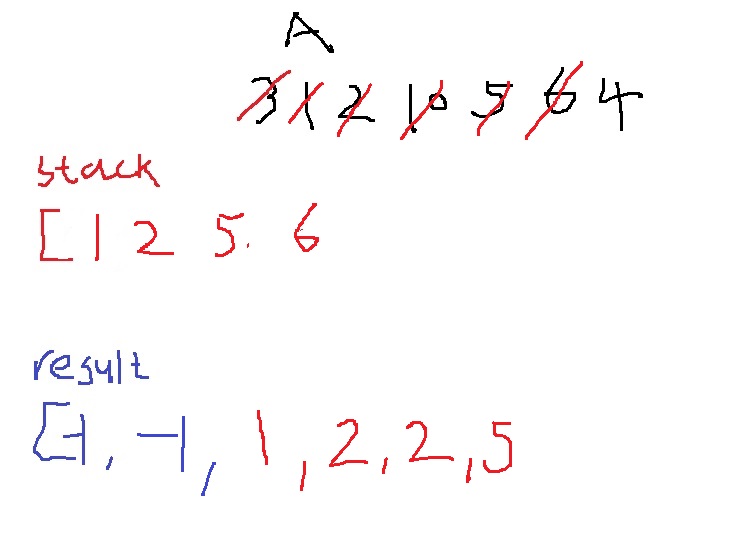 A
3 1 2 10 5 6 4
stack
[ 1 2 5. 6
result
[-1, -1, 1, 2, 2, 5